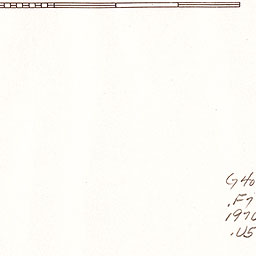 G40
.F7
197
.U5